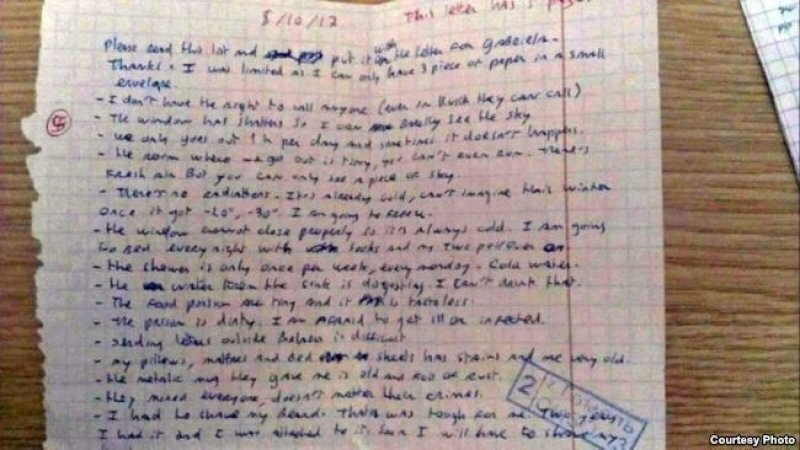 8/10/17 This letter has 5 pages
Please send this list and put it with the letter for Gabriela.
Thanks. I was limited as I can only have 3 piece of paper in a small
envelope.
- I don't have the right to call anyone (even in Russia they can call)
- The window has shutters so I can barely see the sky
- we only goes out 1 h per day and sometimes it doesn't happens.
- The room where we got out is tiny, you can't even run. There's
Fresh air But you can only see a piece of sky
- There's no radiators. It is already cold, can't imagine this winter
once it got -20°, -30°. I am going to freeze.
- The window cannot close properly so it's always cold. I am going
to bed every night with socks and my two pullover on.
- The shower is only once per week, every monday. Cold water.
- The water from the sink is disgusting. I can't drink that.
- The food portion are tiny and it is tasteless.
- The prison is dirty. I am afraid to get ill or infected.
- sending letters outside Belarus is difficult
- my pillows, matress and bed sheets has stains and are very old.
- the metalic mug they gave me is old and full of rust.
- they mixed everyone, doesn't matter their crimes.
- I had to shave my beard. That was tough for me. Two years
I had it and I was attached to it. Soon I will have to shave my
2
Courtesy Photo